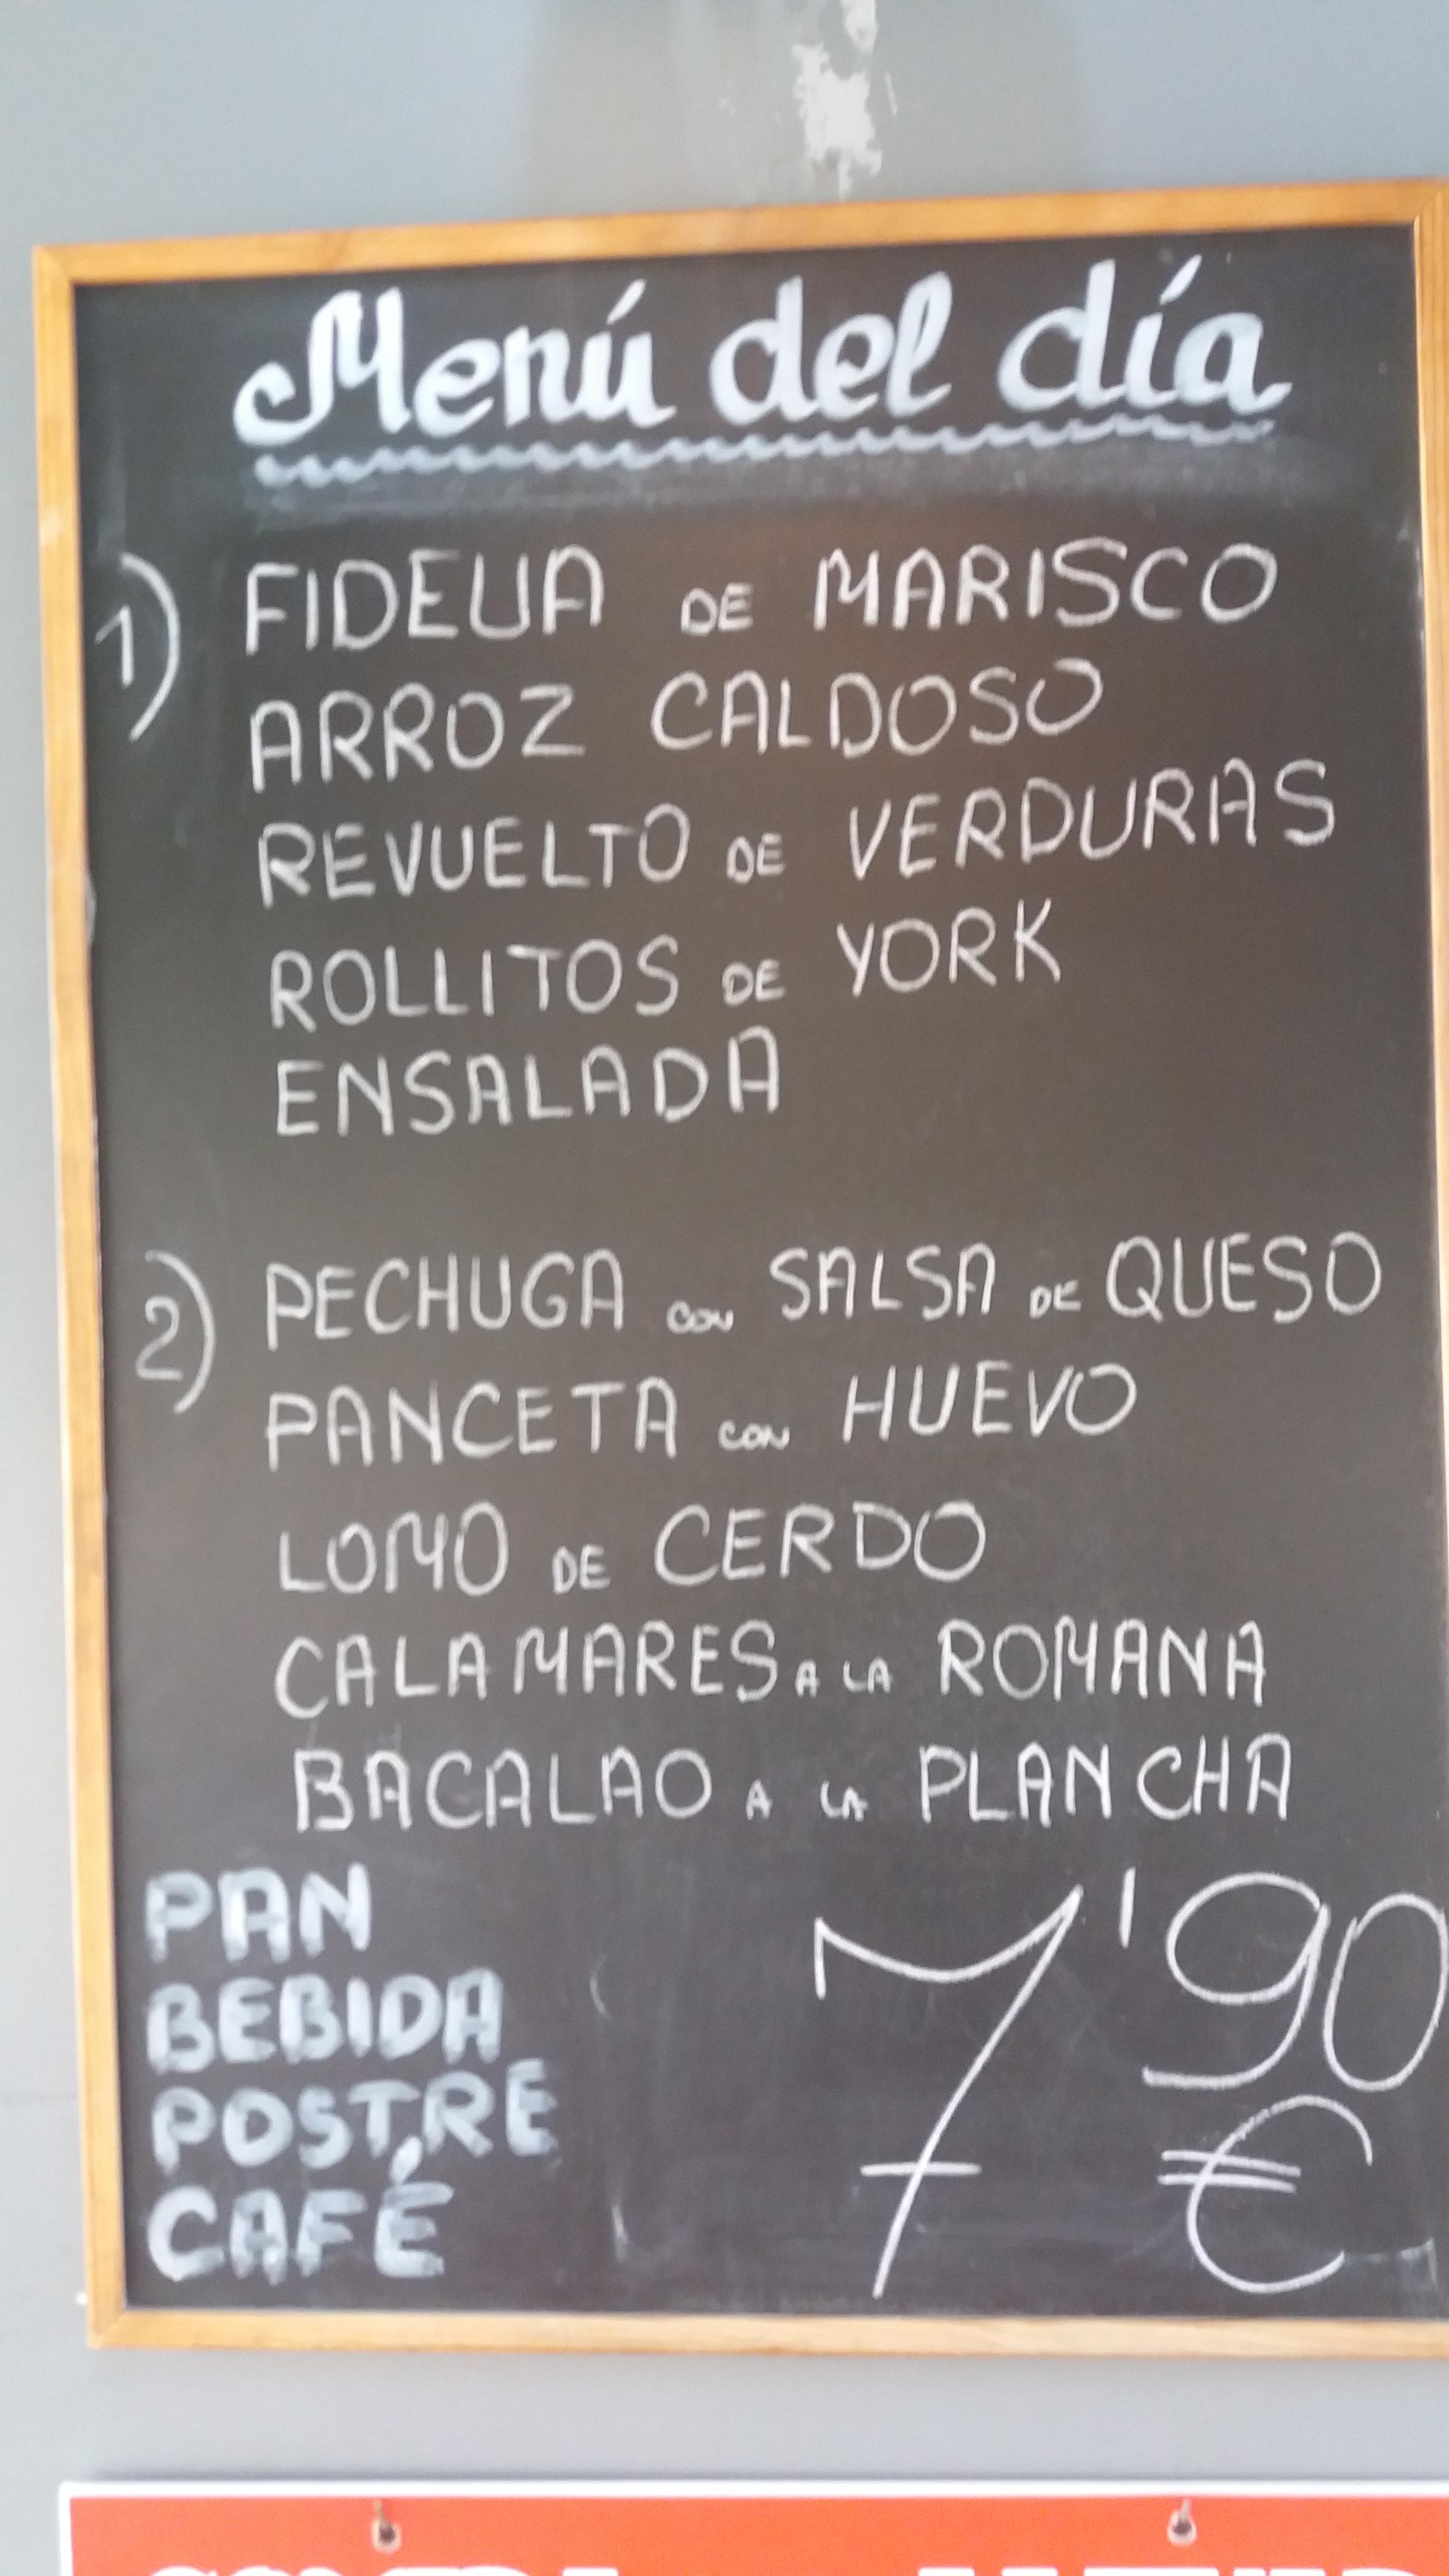 Menú del día
1) FIDEUA DE MARISCO
ARROZ CALDOSO
REVUELTO DE VERDURAS
ROLLITOS DE YORK
ENSALADA
2) PECHUGA con SALSA DE QUESO
PANCETA con HUEVO
LOMO DE CERDO
CALAMARES A LA ROMANA
BACALAO A LA PLANCHA
PAN
BEBIDA
POSTRE
CAFÉ
7'90
€